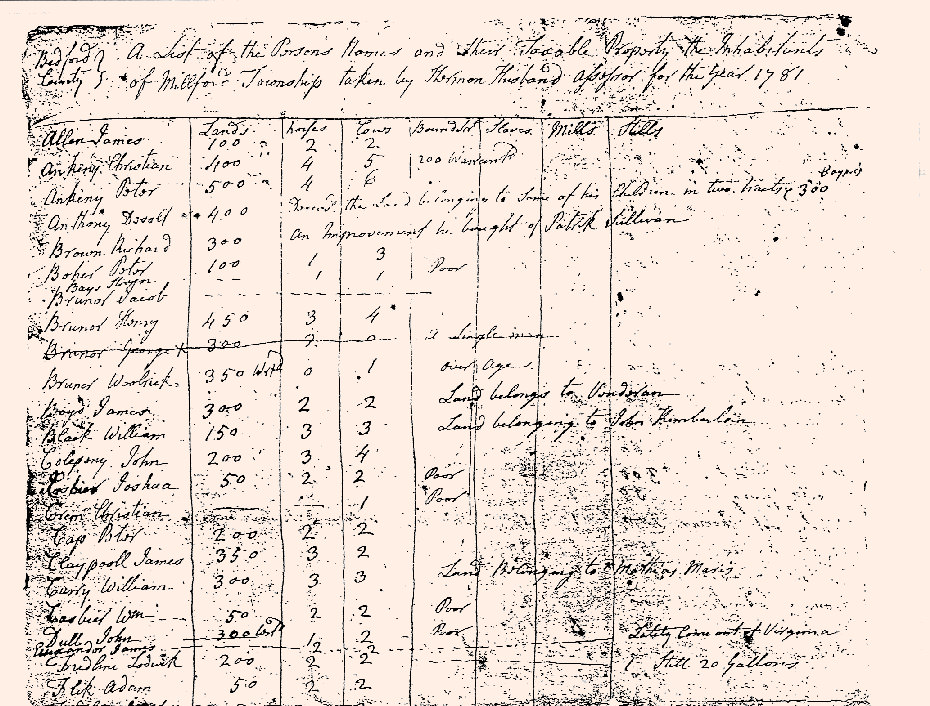 Bedford } A List of the Persons Names and their Taxable Property the Inhabetents
County } of Millford Township taken by Hermon Husband assessor for the Year 1781
Lands horses Cows Bound Ser Slaves Mills Stills
Allen James 100 2 2
Ankeny Christian 400 4 5 200 Warrants
Ankeny Peter 500 4 6
Anthony 400 the Land belonging to Some of his Children in two tracts 300
Brown Richard 300 An Improvement he bought of Patrick Sullivan
Boker Peter 100 1 3 Poor
Bays -- 1 1
Bruner Jacob
Bruner Henry 450 3 4
Bruner George 300 2 0 a Single man
Bruner Woolrick 350 Wrt 0 1 over Age
Boyd James 300 2 2 Land belongs to Vondoran
Black William 150 3 3 Land belonging to John Kemberlin
Colepeny John 200 3 4
Joshua 50 2 2 Poor
Christian 1 Poor
Cap Peter 200 2 2
Claypooll James 350 3 2
Carry William 300 3 3 Land Belonging to Mathias Maris
Casbier Wm 50 2 2 Poor
Dull John 300 Wrt 1 2 Poor Lately Come out of Virginia
James 2 2
Lodwick 200 2 2 1 Still 20 Gallons
Flik Adam 50 2 2